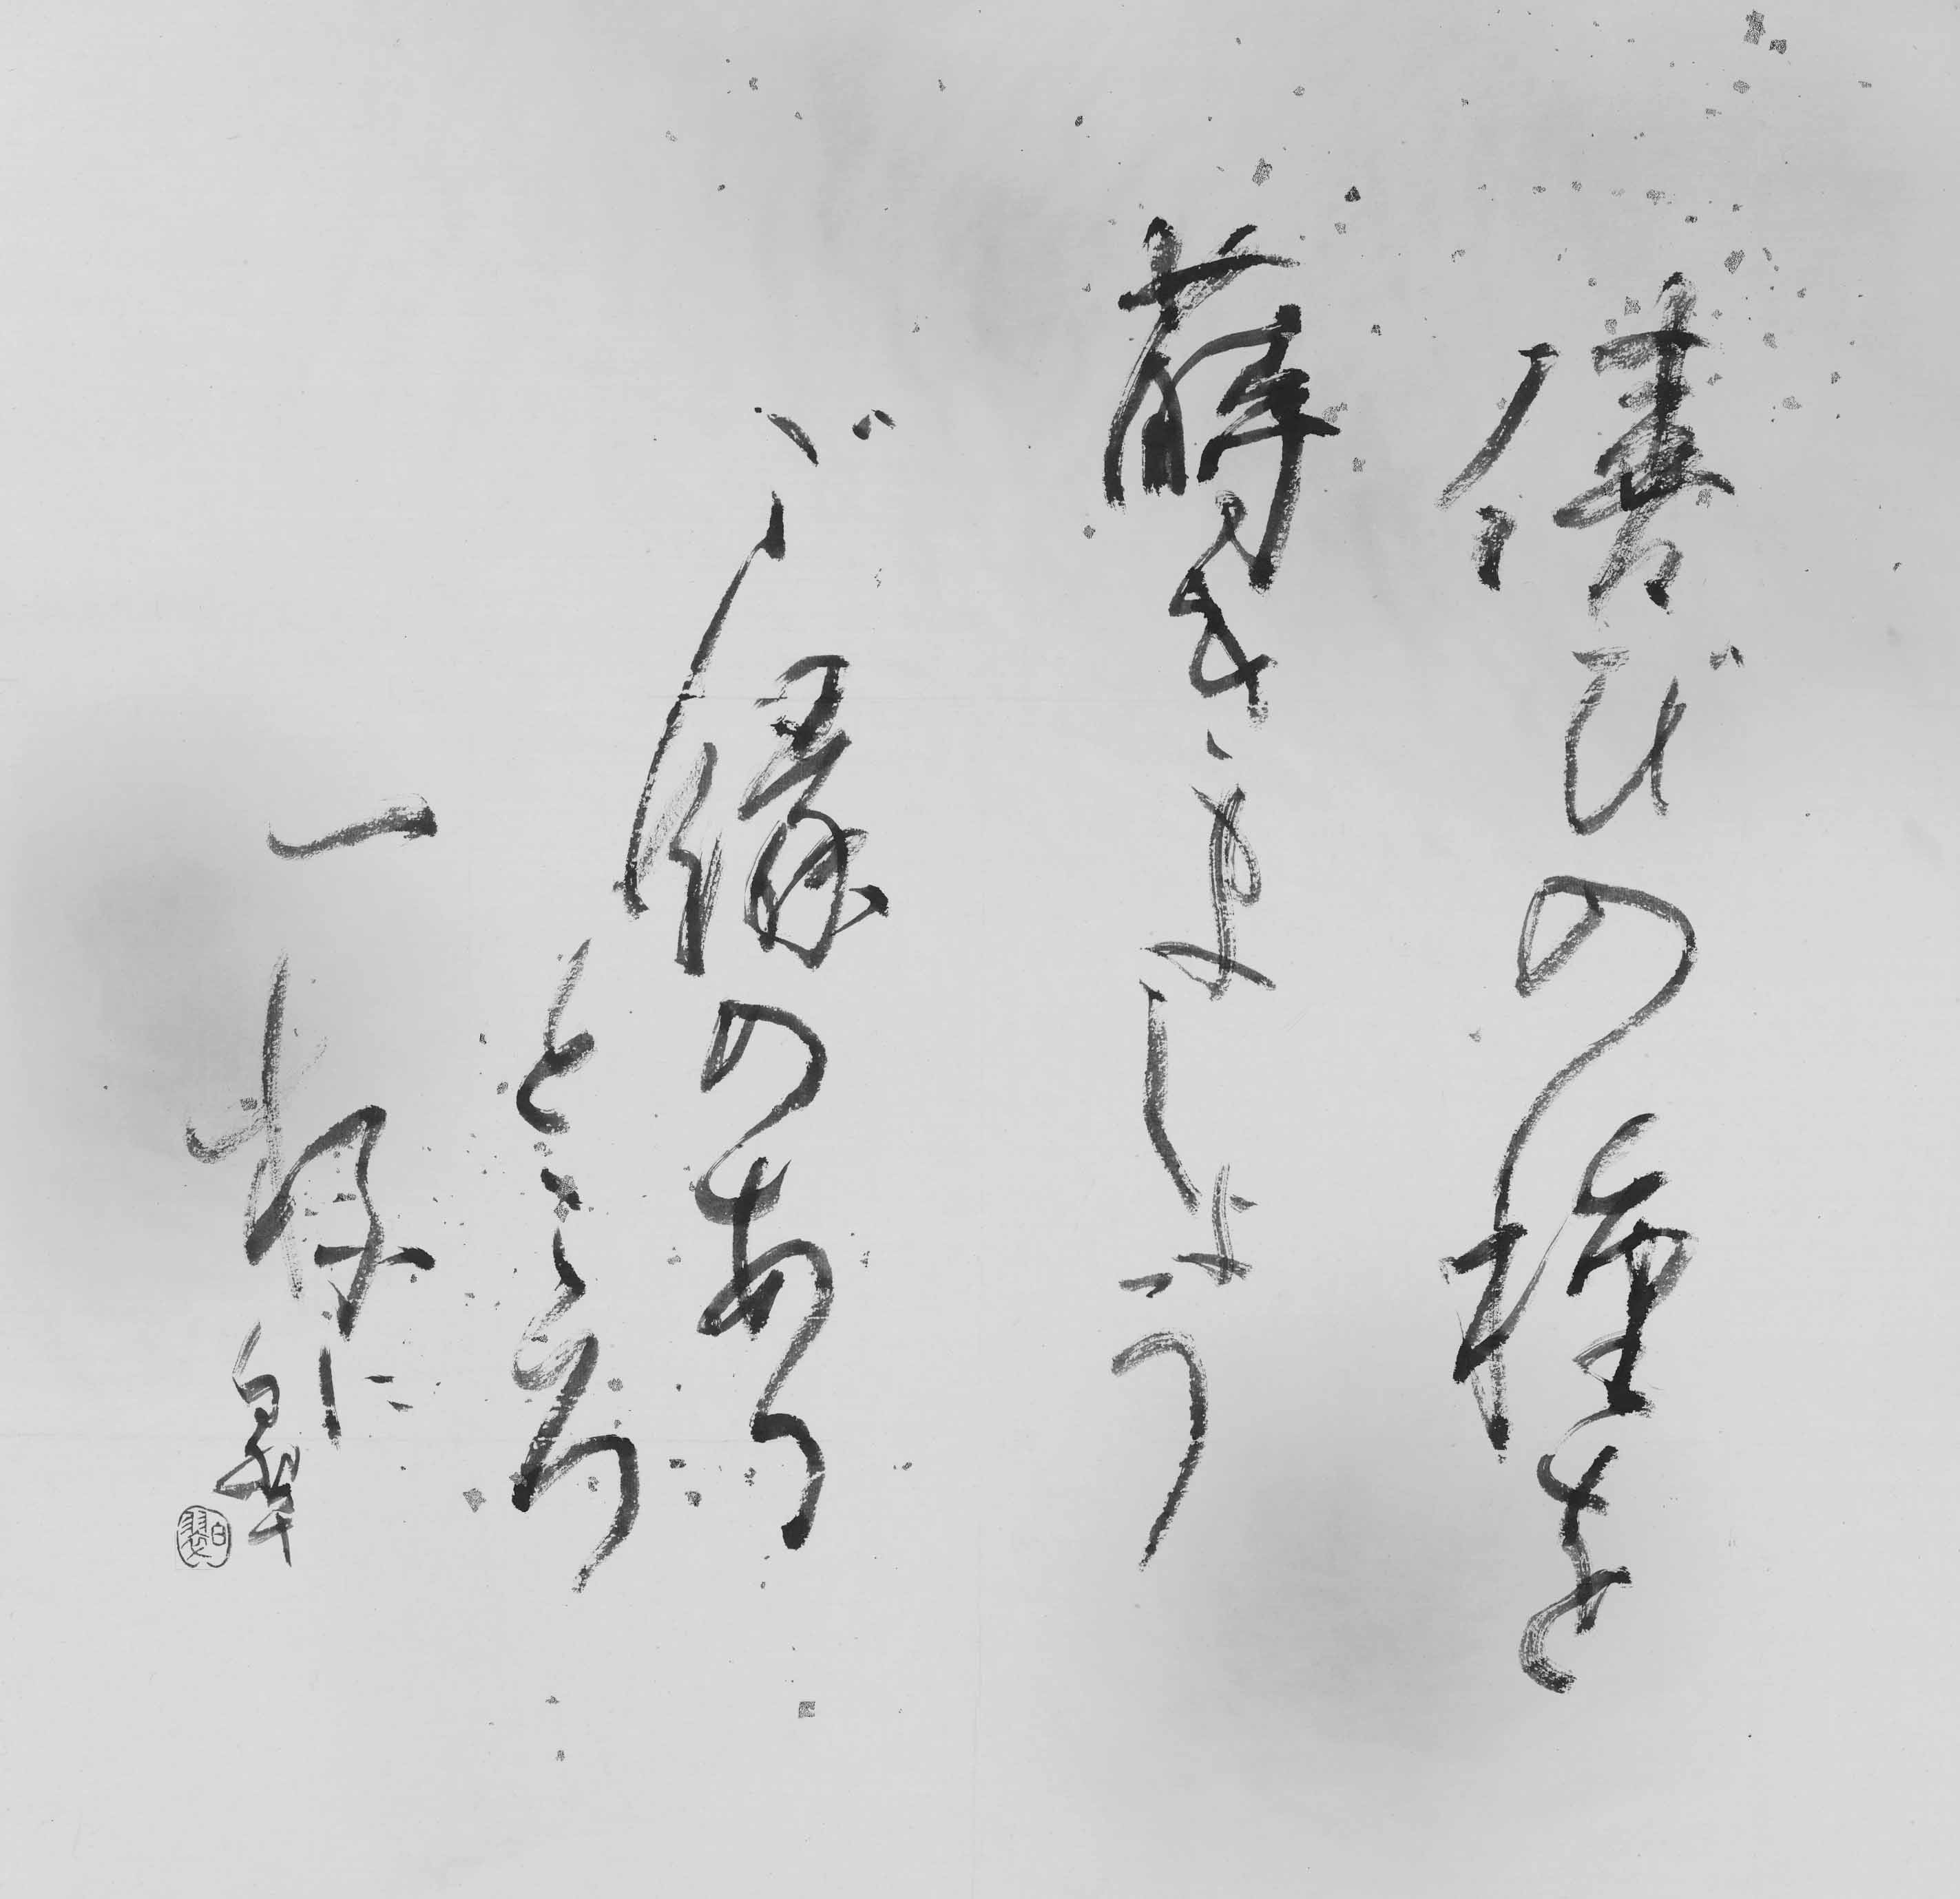 僖びの種を
蒔きましょう
ご縁のある
ところ
一杯に
白翠